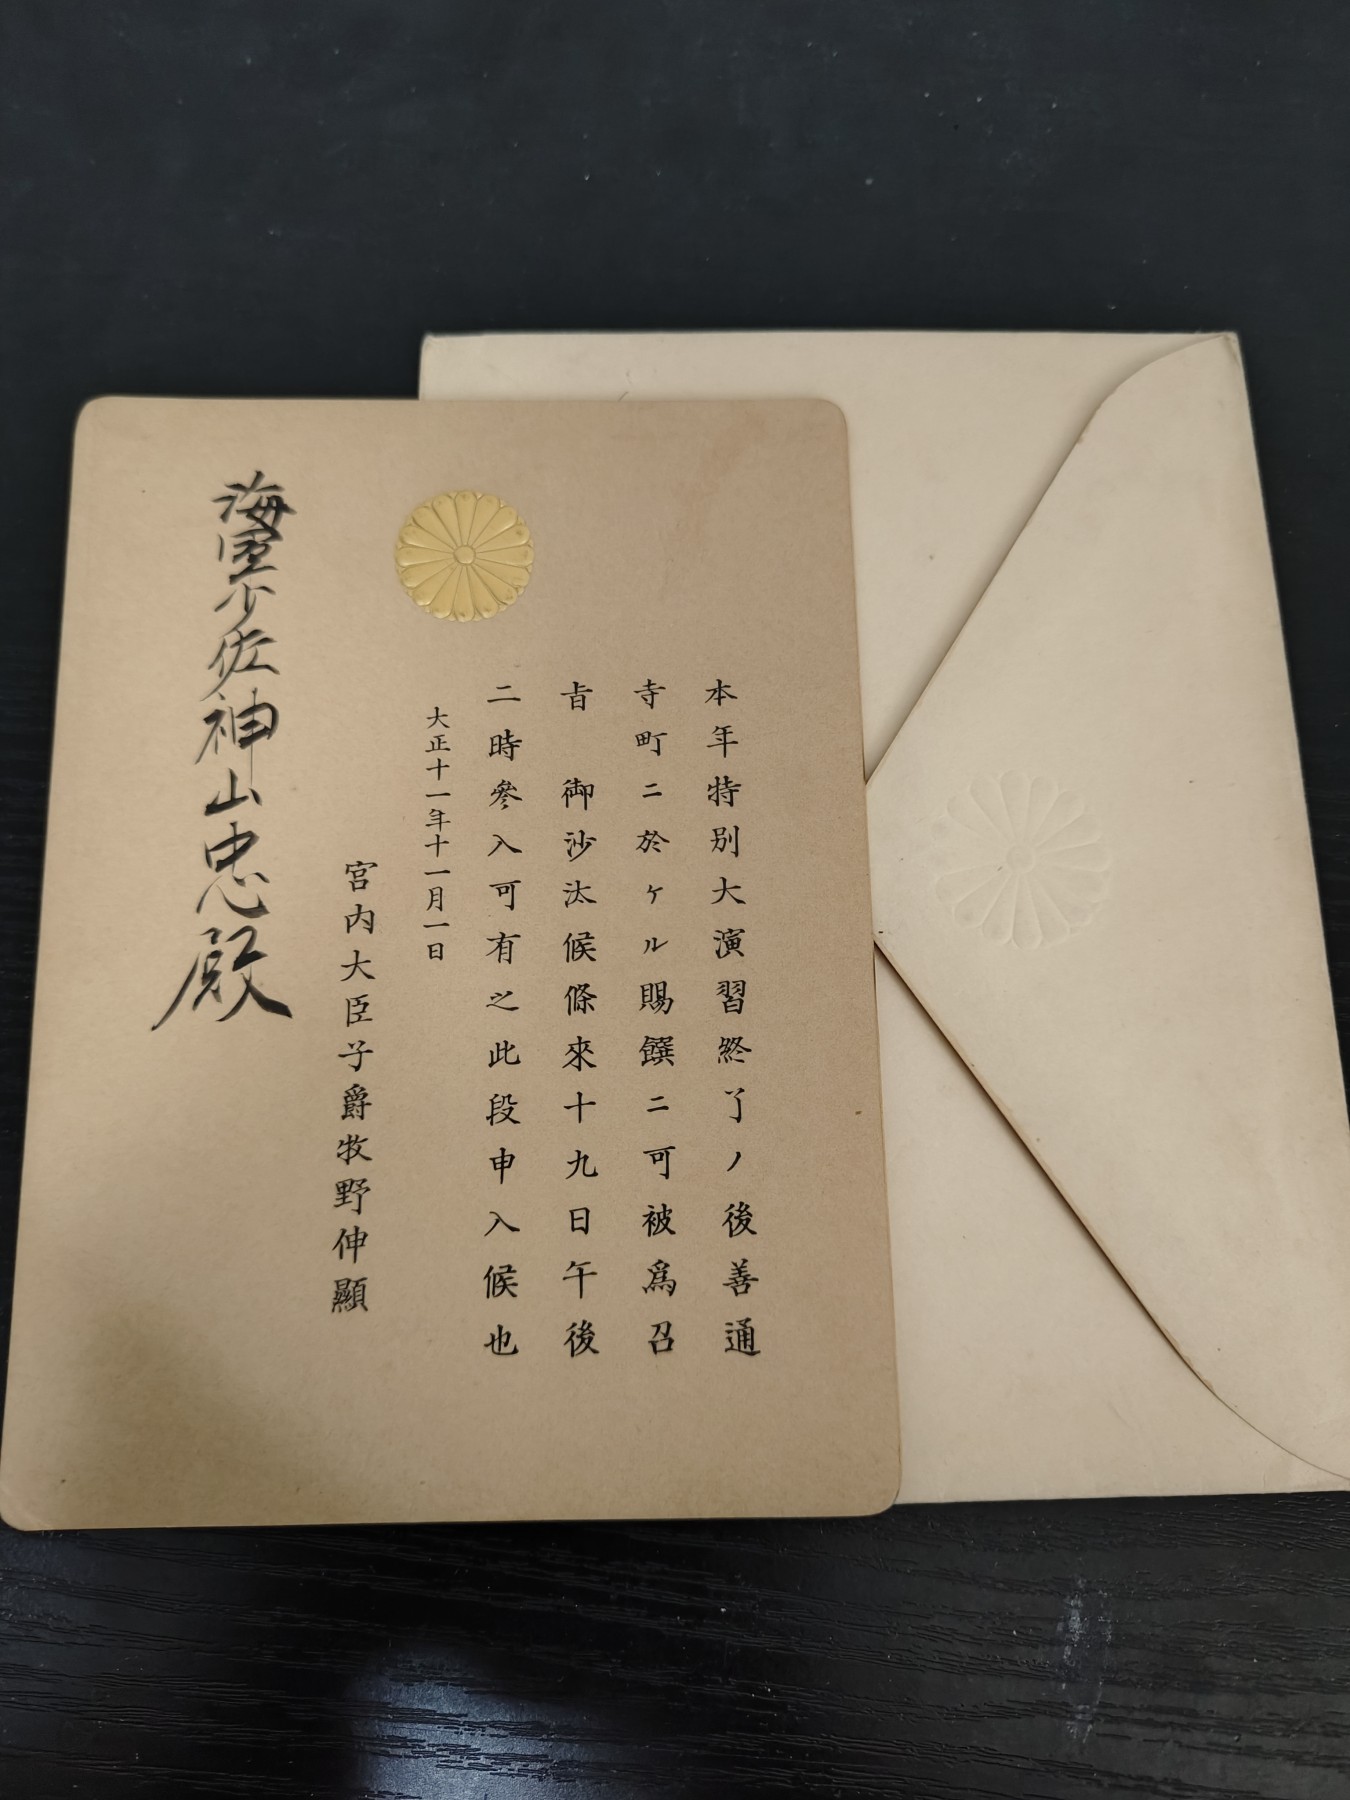 本年特別大演習終了ノ後善通
寺町ニ於ケル賜饌ニ可被爲召
旨　御沙汰候條來十九日午後
二時參入可有之此段申入候也
大正十一年十一月一日
宮内大臣子爵牧野伸顯
海軍少佐神山忠殿